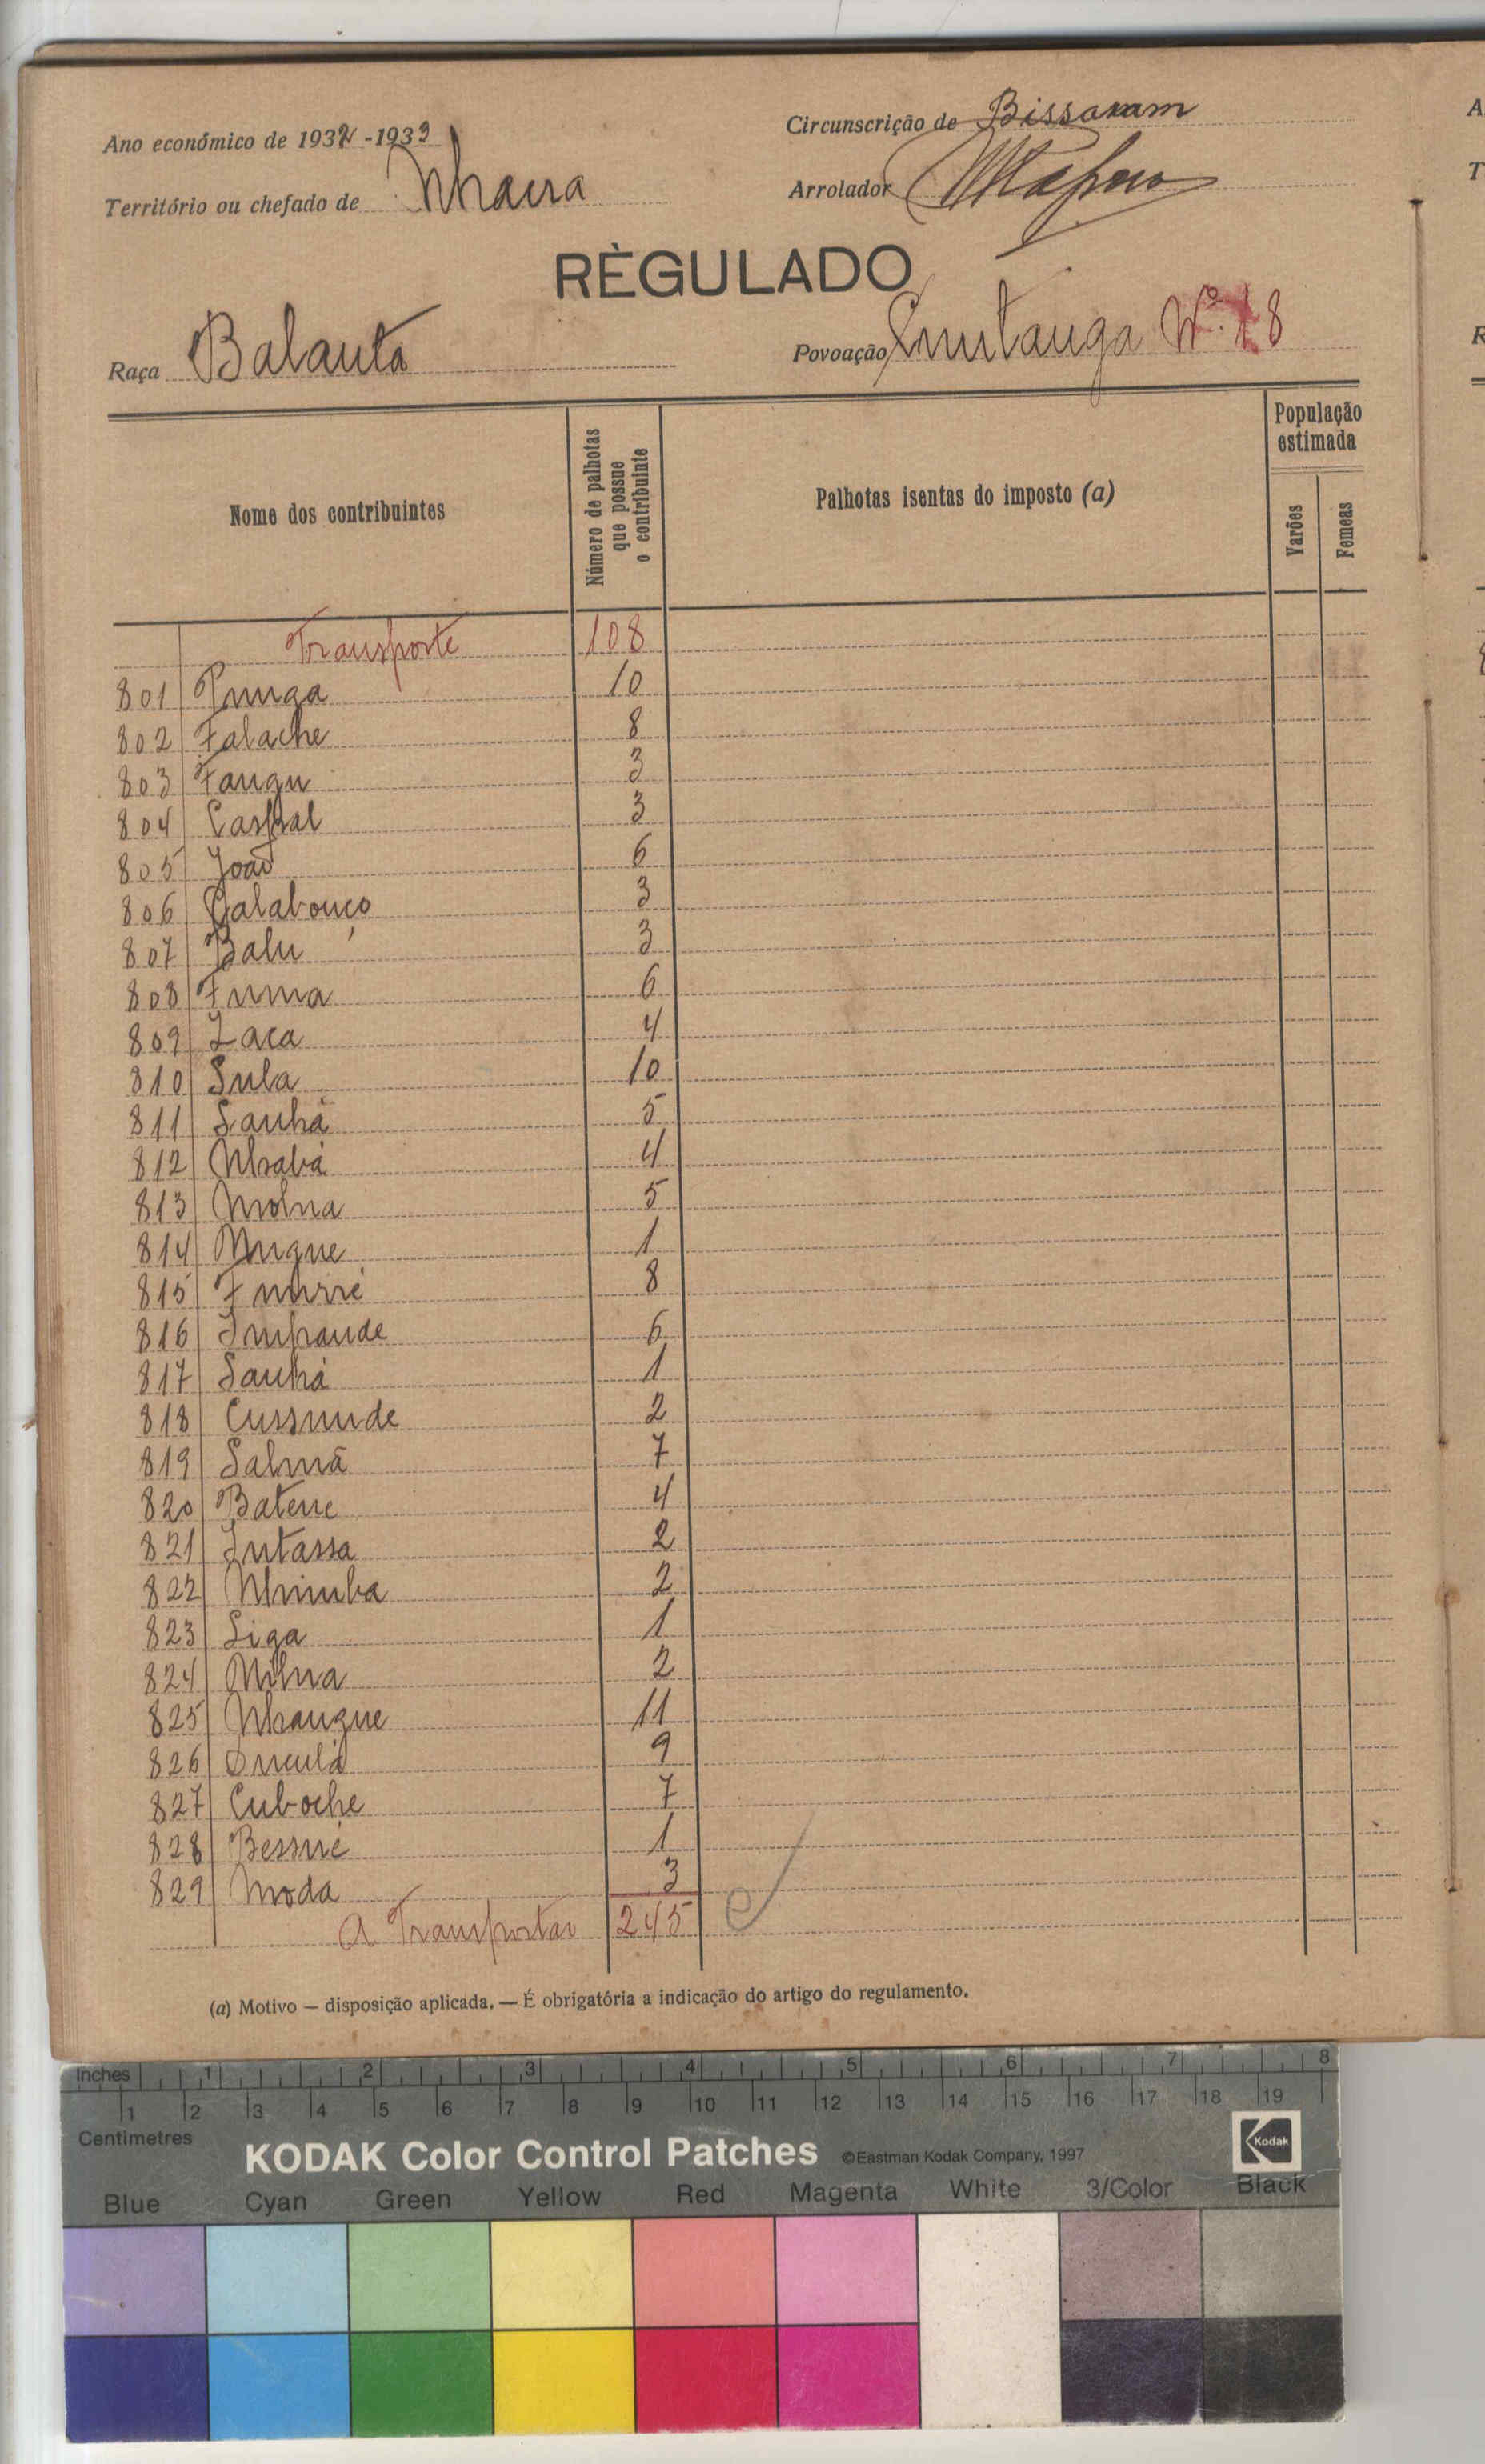 Ano económico de 1932-1933
Circunscrição de Bissoram
Território ou chefado de Nhaura
Arrolador
RÈGULADO
Raça Balanta
Povoação Enutanga Nº 18
Nome dos contribuintes
Número de palhotas que possue o contribuinte
Palhotas isentas do imposto (a)
População estimada
Varões
Femeas
Transporte 108
801 Punga 10
802 Falache 8
803 Fangu 3
804 Caspal 3
805 João 6
806 Calabouço 3
807 Balu 3
808 Fuma 6
809 Zaca 4
810 Sula 10
811 Sanhá 5
812 Nhabá 4
813 Molna 5
814 Mugue 1
815 Fnurré 8
816 Infrande 6
817 Sanhá 1
818 Cussunde 2
819 Salmã 7
820 Batene 4
821 Intassa 2
822 Nhimba 2
823 Siga 1
824 Nilna 2
825 Nhangue 11
826 Onculá 9
827 Cuboche 7
828 Bessné 1
829 Moda 3
A Transportar 245
(a) Motivo — disposição aplicada. — É obrigatória a indicação do artigo do regulamento.
Inches 1 2 3 4 5 6 7 8
1 2 3 4 5 6 7 8 9 10 11 12 13 14 15 16 17 18 19
Centimetres
KODAK Color Control Patches ©Eastman Kodak Company, 1997 Kodak
Blue Cyan Green Yellow Red Magenta White 3/Color Black